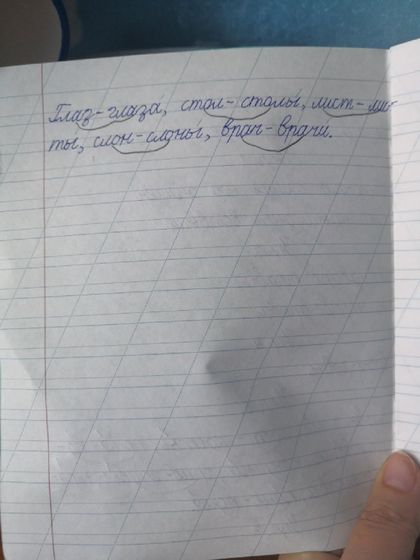 Глаз-глаза, стол-столы, лист-лис-
ты, слон-слоны, врач-врачи.